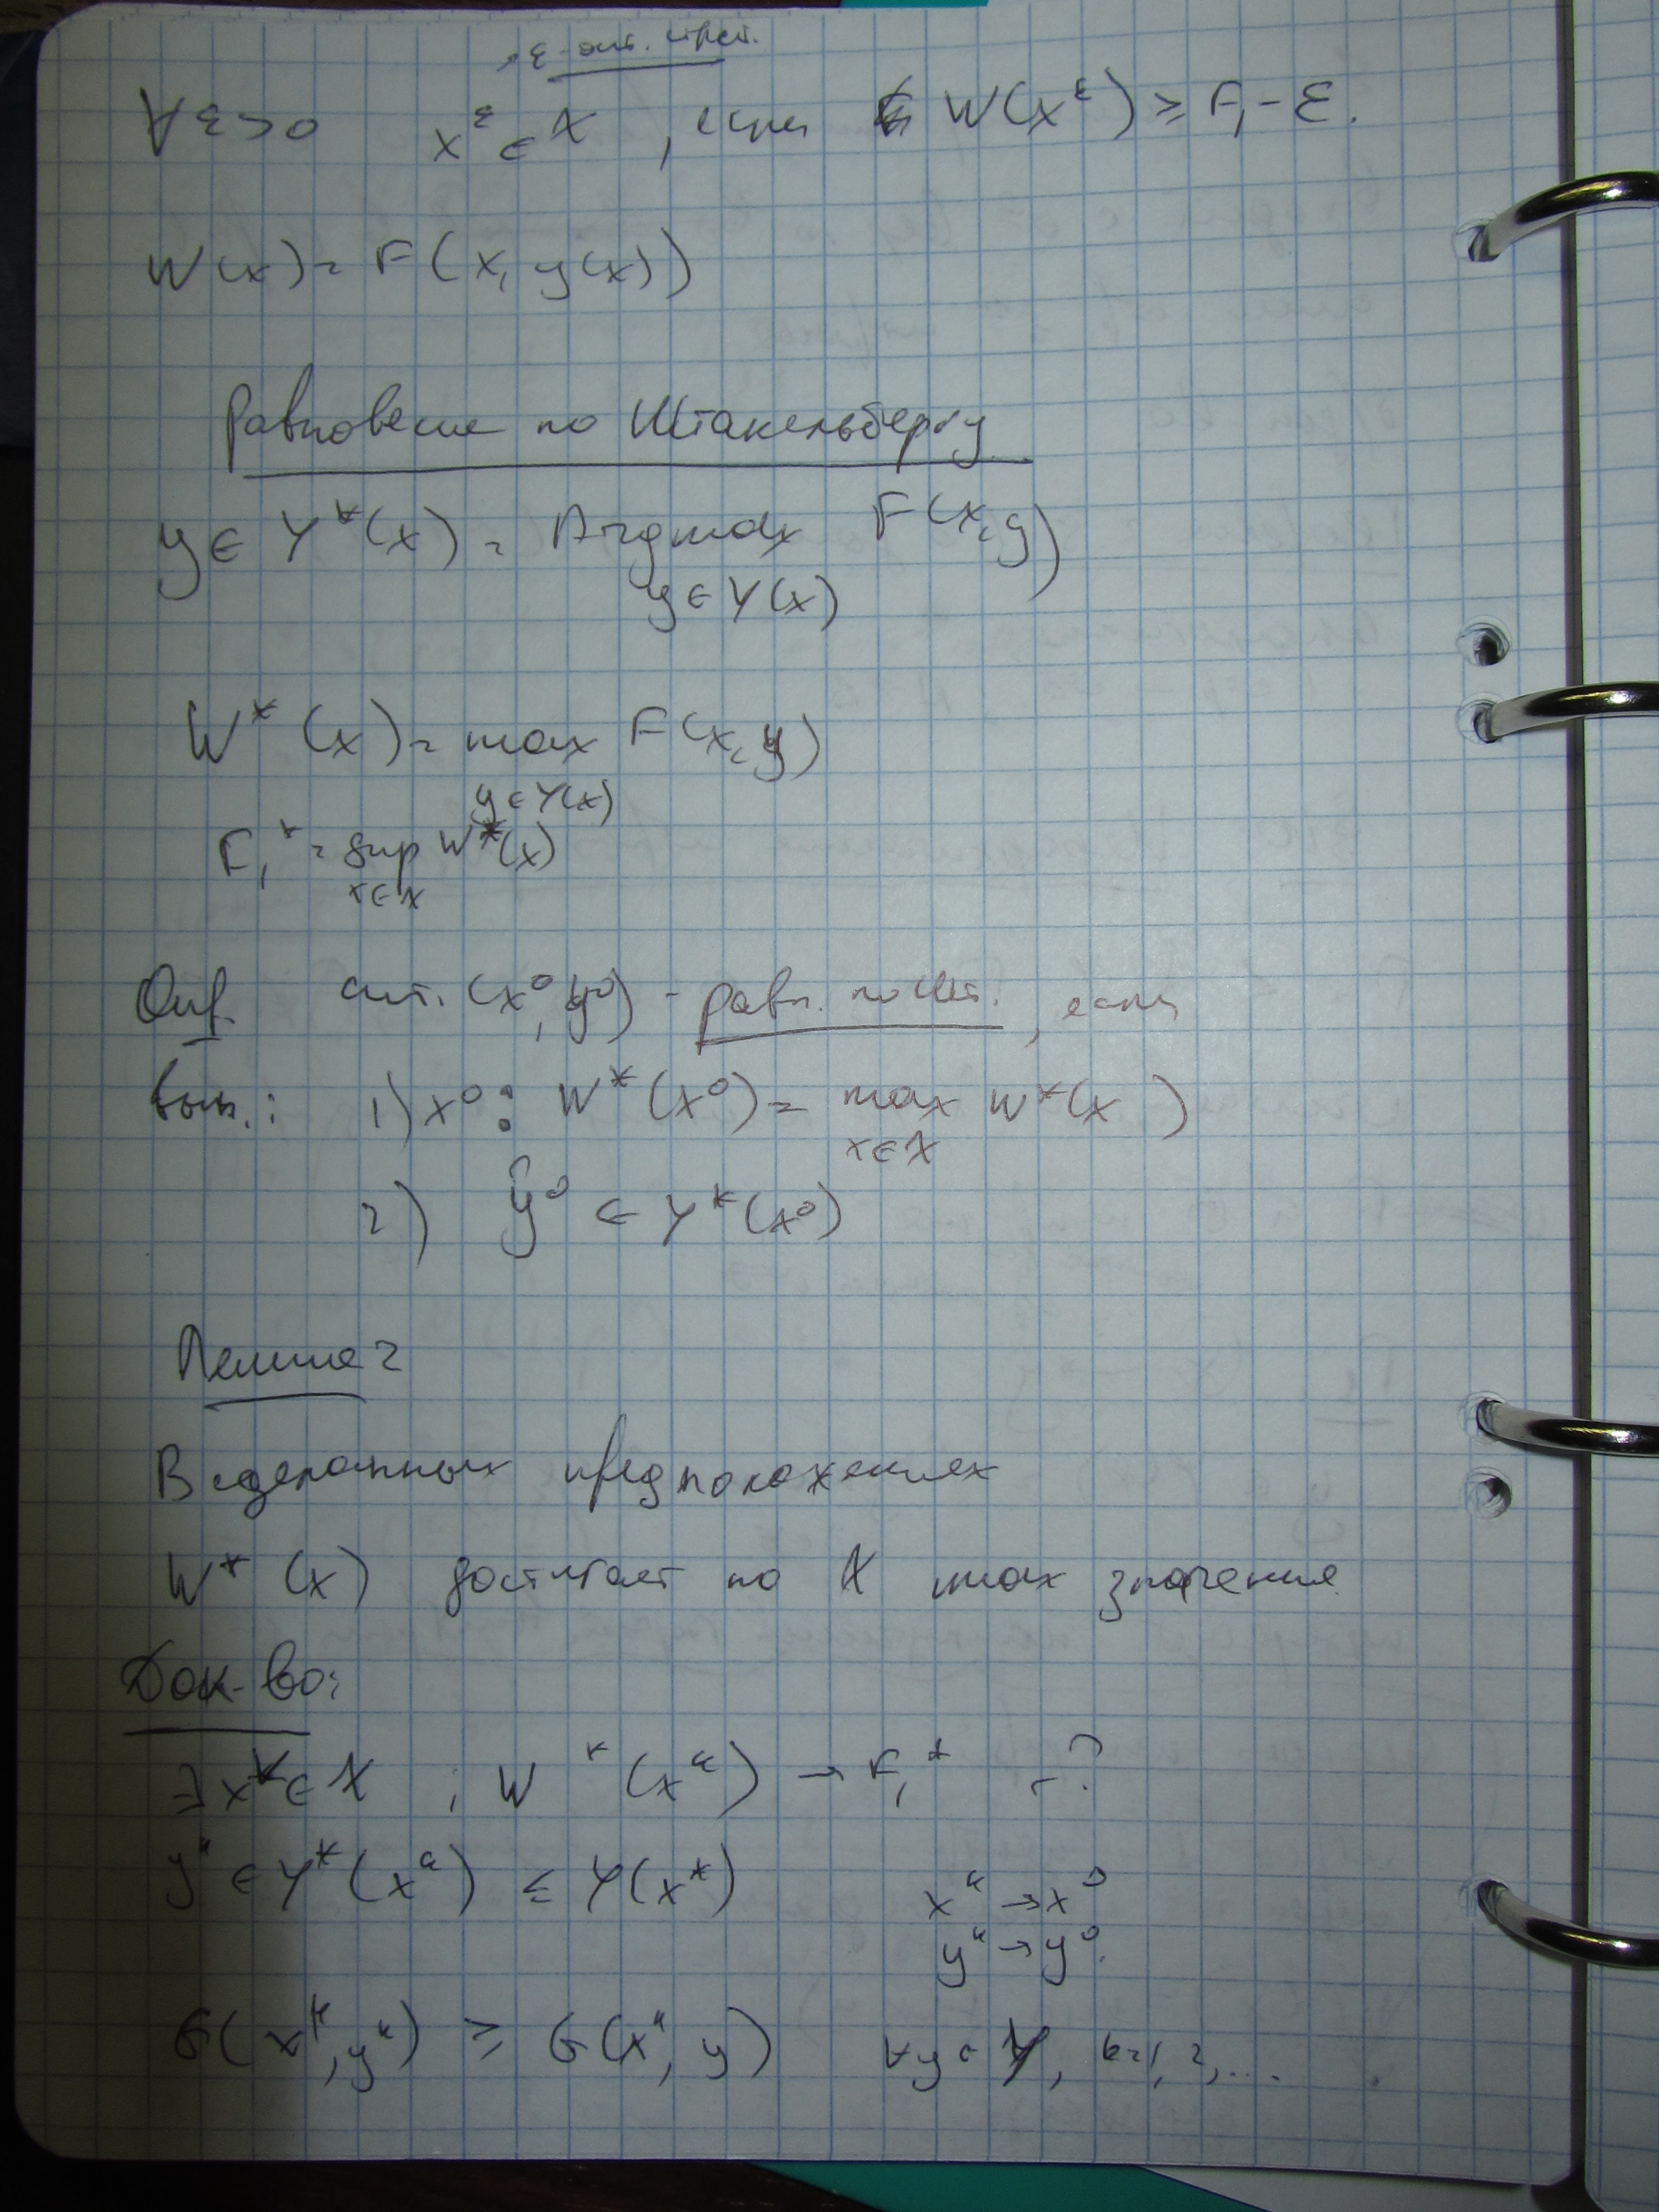 ε-опт. страт.
∀ε>0 x^ε ∈ X, если W(x^ε) ≥ F₁ - ε.
W(x) = F(x, y(x))
Равновесие по Штакельбергу
y ∈ Y*(x) = Argmax F(x, y)
y ∈ Y(x)
W*(x) = max F(x, y)
y ∈ Y(x)
F₁* = sup W*(x)
x ∈ X
Опр. сит. (x⁰, y⁰) - равн. по Шт., если
вып.: 1) x⁰ : W*(x⁰) = max W*(x)
x ∈ X
2) y⁰ ∈ Y*(x⁰)
Лемма 2
В сделанных предположениях
W*(x) достигает на X max значения
Док-во:
∃ x^k ∈ X ; W*(x^k) → F₁* - ?
y^k ∈ Y*(x^k) ≤ Y(x^k)
x^k → x⁰
y^k → y⁰.
G(x^k, y^k) ≥ G(x^k, y) ∀y ∈ Y, k=1, 2, ...